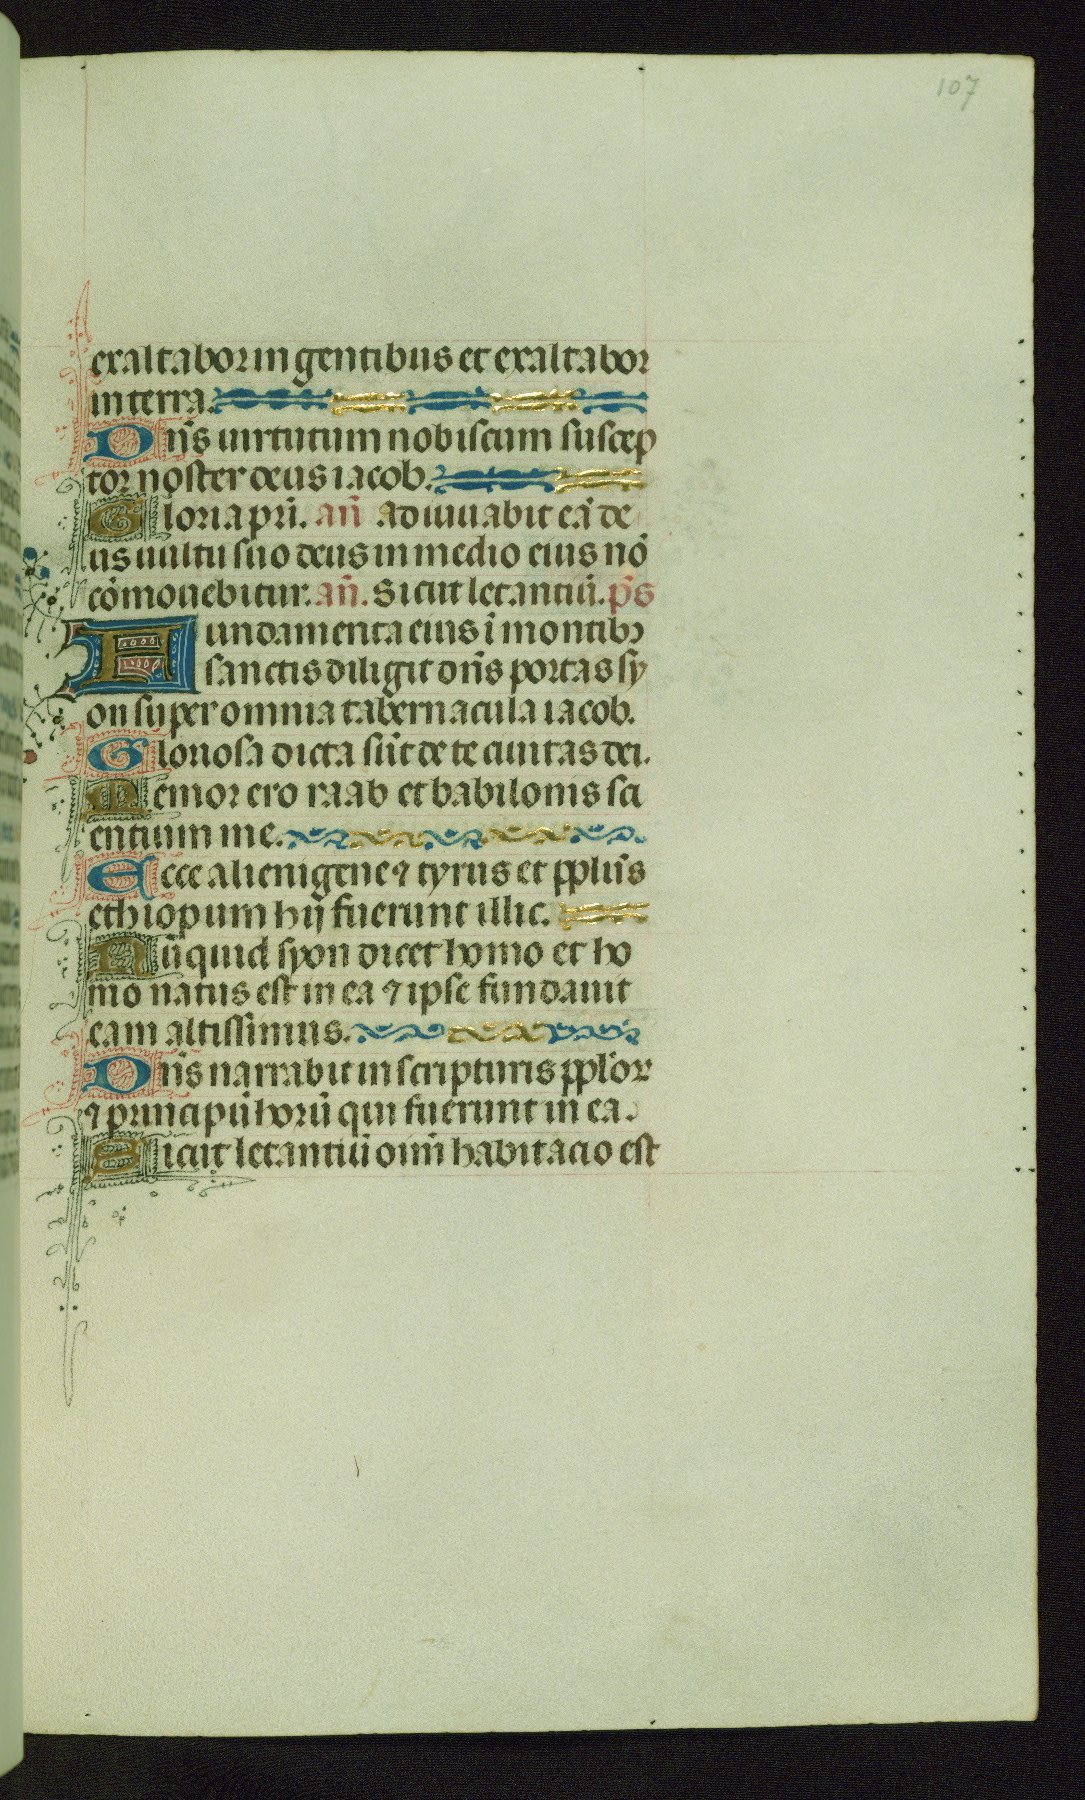 107
exaltabor in gentibus et exaltabor
in terra.
Dñs uirtutum nobiscum suscep
tor noster deus iacob.
Gloria pri. añ Adiuuabit eā de
us uultu suo deus in medio eius nō
cōmouebitur. añ. Sicut letantiū. ps
Fundamenta eius ī montibꝫ
sanctis diligit dñs portas sy
on super omnia tabernacula iacob.
Gloriosa dicta sūt de te ciuitas dei.
Memor ero raab et babilonis sci
entium me.
Ecce alienigene ⁊ tyrus et pplūs
ethiopum hij fuerunt illic.
Nūquid syon dicet homo et ho
mo natus est in ea ⁊ ipse fundauit
eam altissimus.
Dñs narrabit in scripturis pplor
⁊ principū horū qui fuerunt in ea.
Sicut letantiū oīm habitacio est